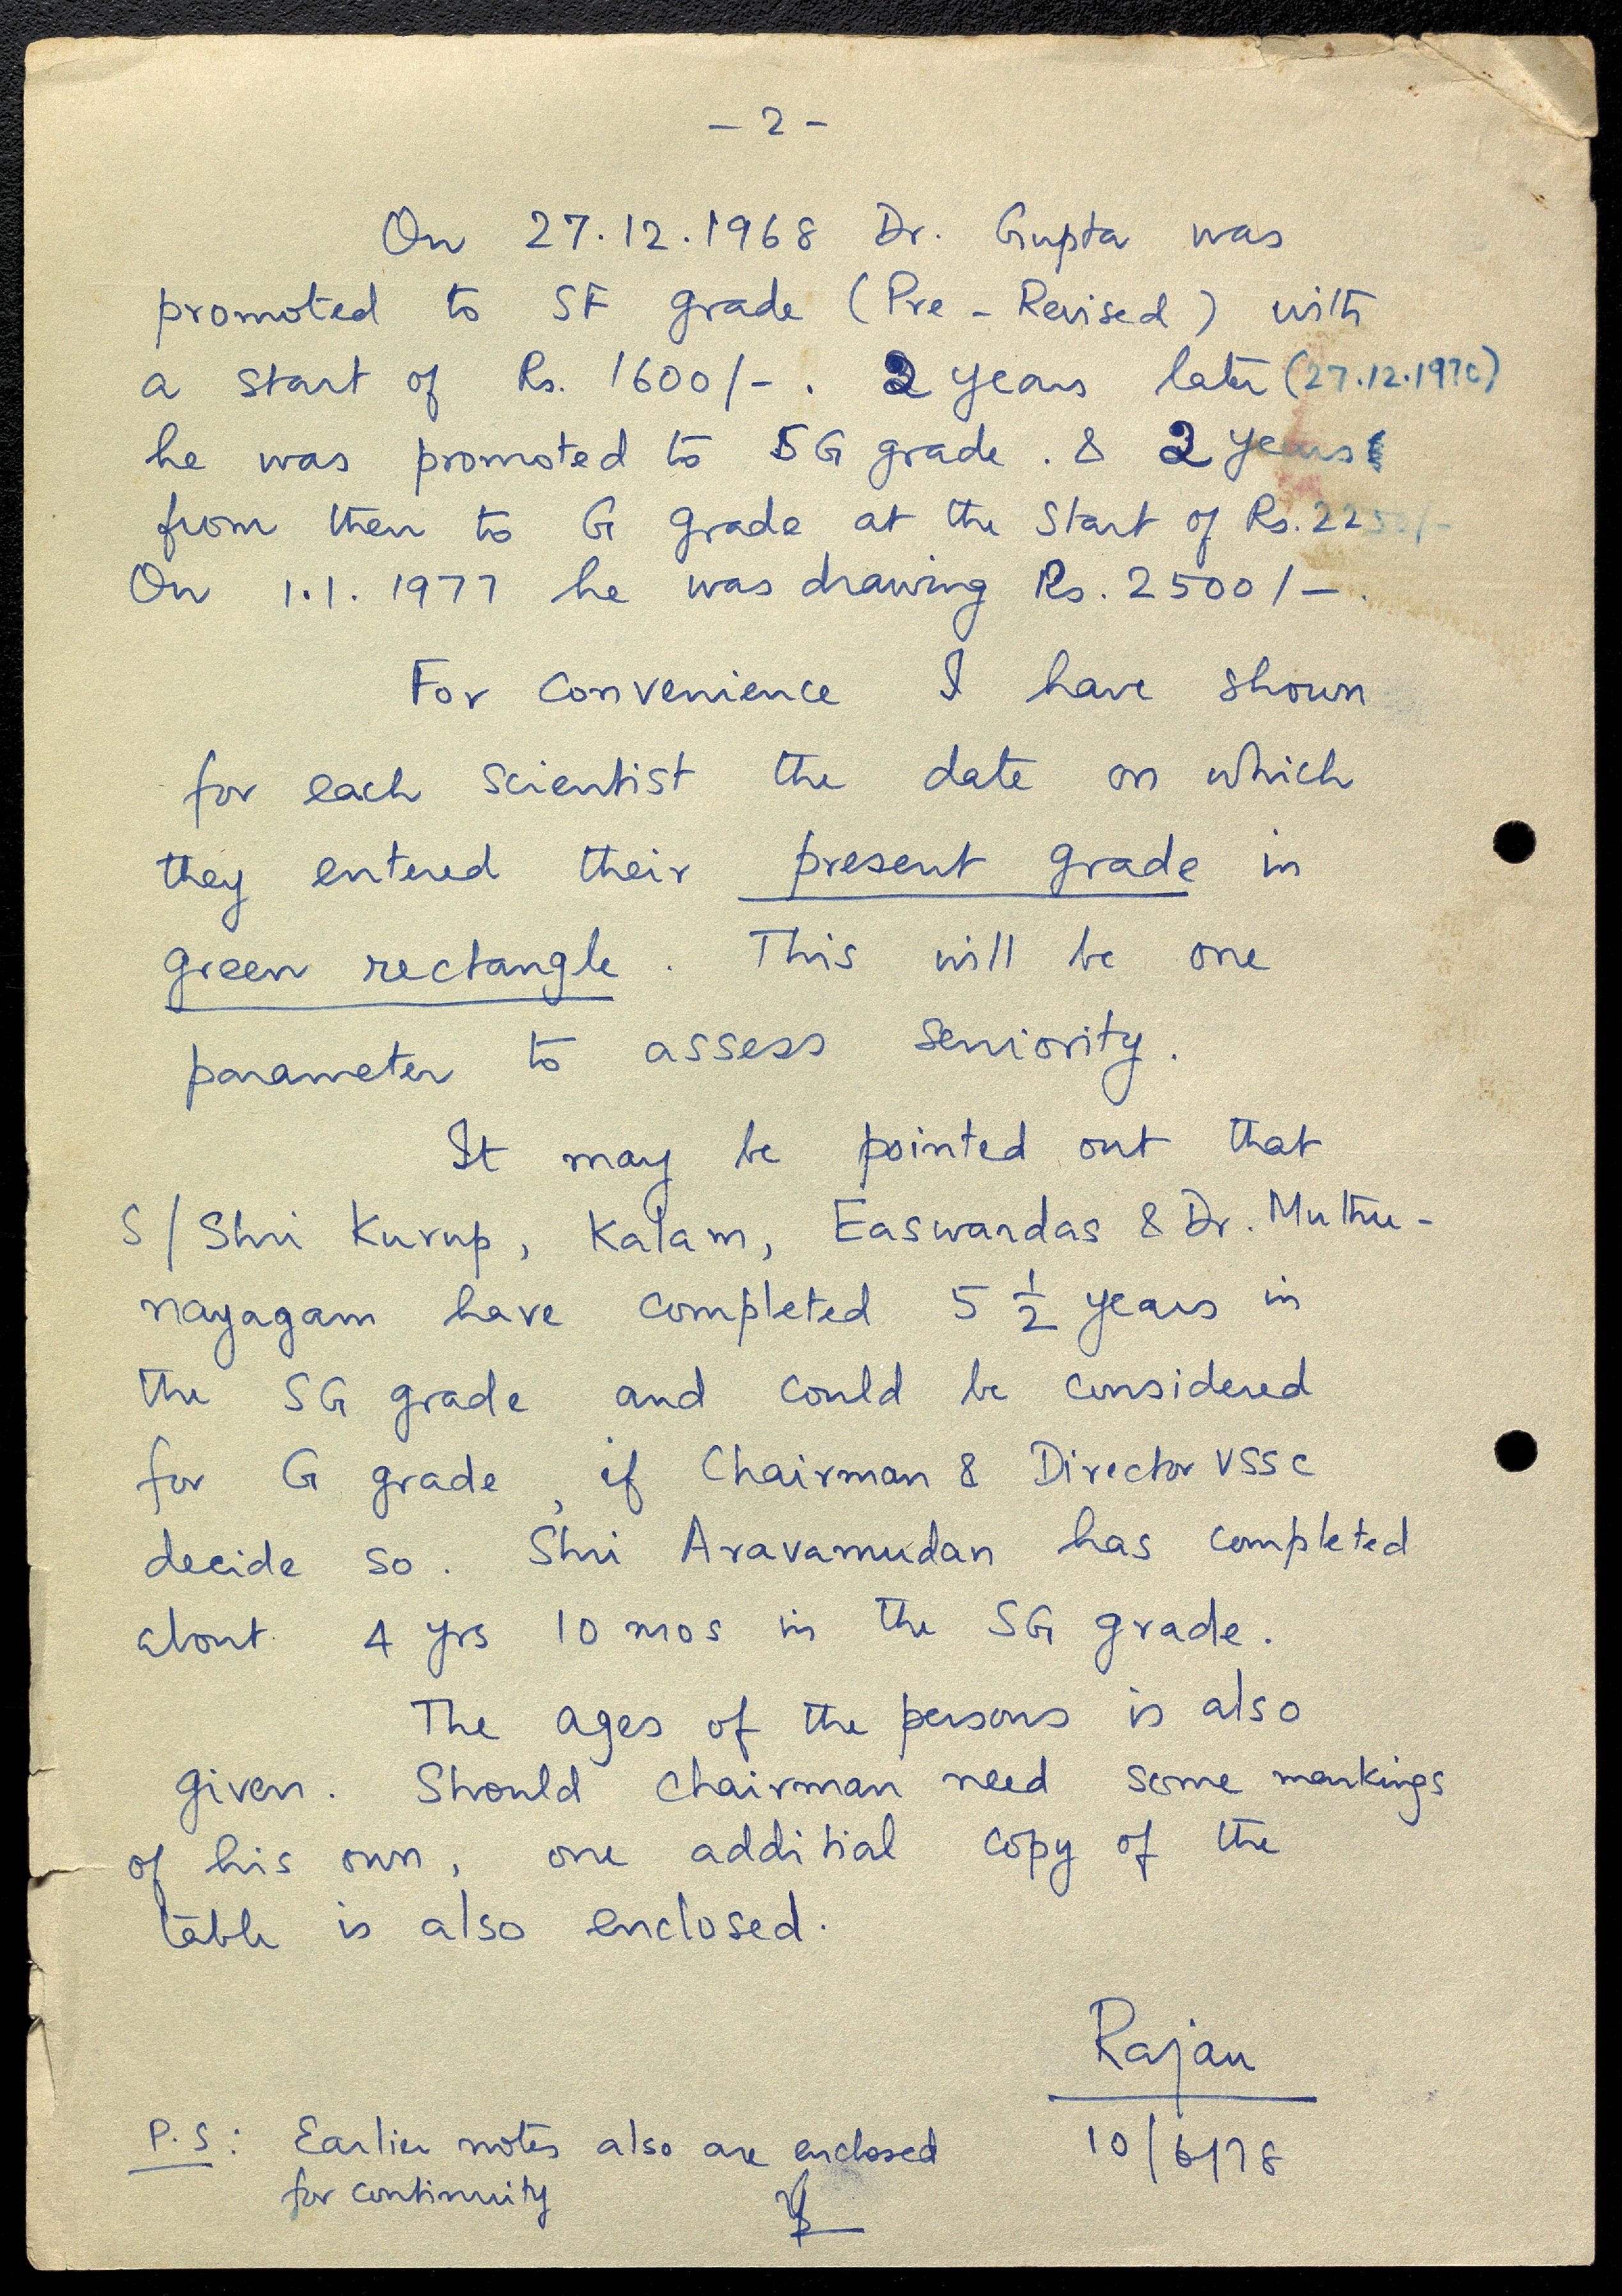 - 2 -
On 27.12.1968 Dr. Gupta was
promoted to SF grade (Pre - Revised) with
a start of Rs. 1600/- . 2 years later (27.12.1970)
he was promoted to SG grade . & 2 years
from then to G grade at the start of Rs. 2250/-
On 1.1.1977 he was drawing Rs. 2500/- .
For convenience I have shown
for each scientist the date on which
they entered their present grade in
green rectangle . This will be one
parameter to assess seniority.
It may be pointed out that
S/Shri Kurup, Kalam, Easwardas & Dr. Muthu-
nayagam have completed 5 1/2 years in
the SG grade and could be considered
for G grade, if Chairman & Director VSSC
decide so. Shri Aravamudan has completed
about 4 yrs 10 mos in the SG grade.
The ages of the persons is also
given. Should Chairman need some markings
of his own, one additial copy of the
table is also enclosed.
Rajan
10/6/78
P.S: Earlier notes also are enclosed
for continuity